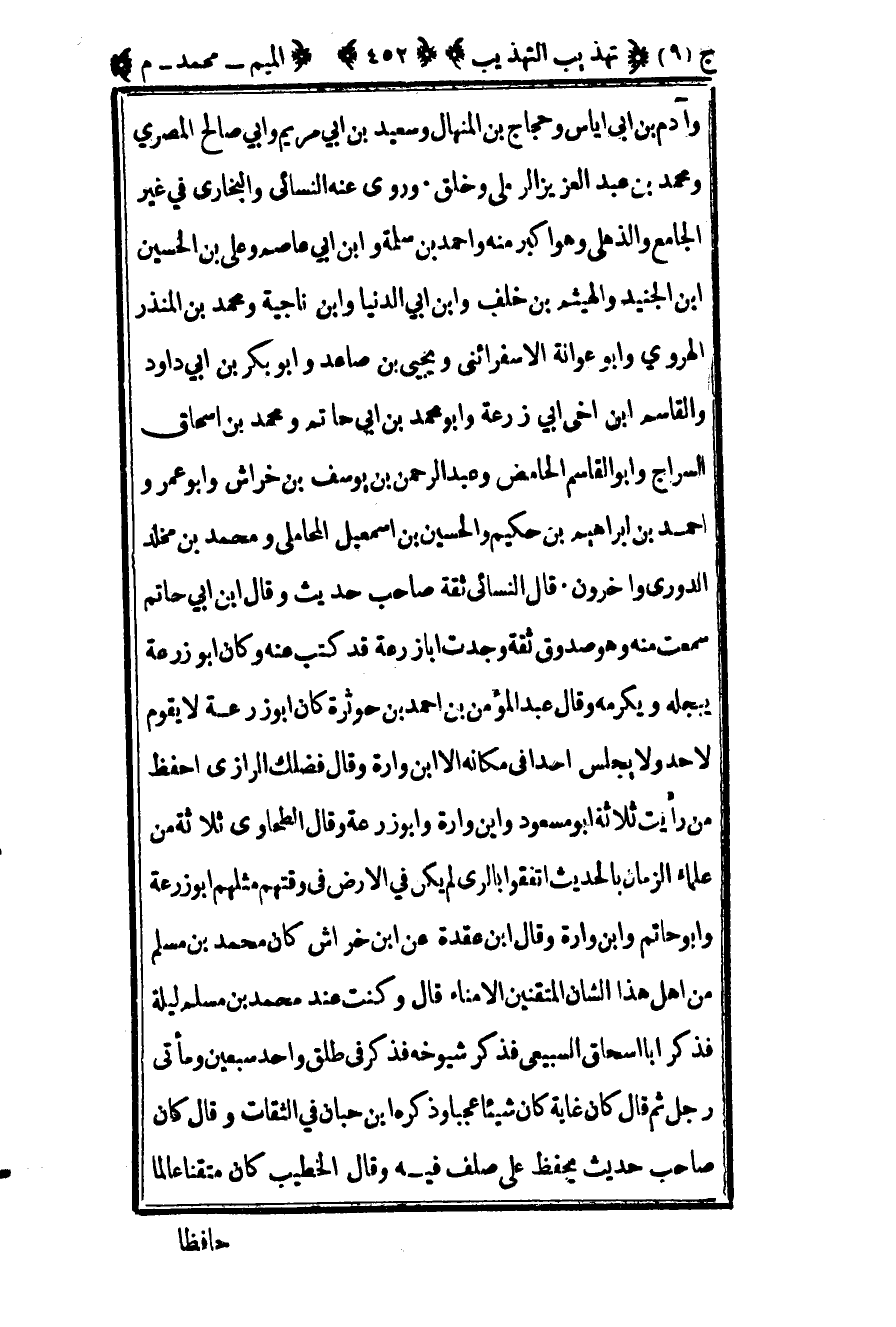 ج (٩) ﴿ تهذيب التهذيب ﴾ ﴿ ٤٥٢ ﴾ ﴿ الميم - محمد - م ﴾
وآدم بن ابى اياس وحجاج بن المنهال وسعيد بن ابي مريم وابي صالح المصري
ومحمد بن عبد العزيز الرملى وخلق ٠ وروى عنه النسائى والبخارى في غير
الجامع والذهلى وهو اكبر منه واحمد بن سلمة و ابن ابي عاصم وعلى بن الحسين
ابن الجنيد والهيثم بن خلف وابن ابي الدنيا وابن ناجية ومحمد بن المنذر
الهروي وابو عوانة الاسفرائنى ويحيى بن صاعد وابو بكر بن ابي داود
والقاسم ابن اخى ابي زرعة وابو محمد بن ابي حاتم ومحمد بن اسحاق
السراج وابو القاسم الحامض وعبد الرحمن بن يوسف بن خراش وابو عمر و
احمد بن ابراهيم بن حكيم والحسين بن اسمعيل المحاملى ومحمد بن مخلد
الدورى واخرون ٠ قال النسائى ثقة صاحب حديث وقال ابن ابي حاتم
سمعت منه وهو صدوق ثقة وجدت ابا زرعة قد كتب عنه وكان ابو زرعة
يبجله ويكرمه وقال عبد المؤمن بن احمد بن حوثرة كان ابو زرعة لا يقوم
لاحد ولا يجلس احدا فى مكانه الا ابن وارة وقال فضلك الرازى احفظ
من رأيت ثلاثة ابو مسعود وابن وارة وابو زرعة وقال الطحاوى ثلاثة من
علماء الزمان بالحديث اتفقوا بالرى لم يكن في الارض فى وقتهم مثلهم ابو زرعة
وابو حاتم وابن وارة وقال ابن عقدة عن ابن خراش كان محمد بن مسلم
من اهل هذا الشان المتقنين الامناء قال وكنت عند محمد بن مسلم ليلة
فذكر ابا اسحاق السبيعى فذكر شيوخه فذكر فى طلق واحد سبعين ومأتى
رجل ثم قال كان غاية كان شيئا عجبا وذكره ابن حبان في الثقات وقال كان
صاحب حديث يحفظ على صلف فيه وقال الخطيب كان متقنا عالما
حافظا